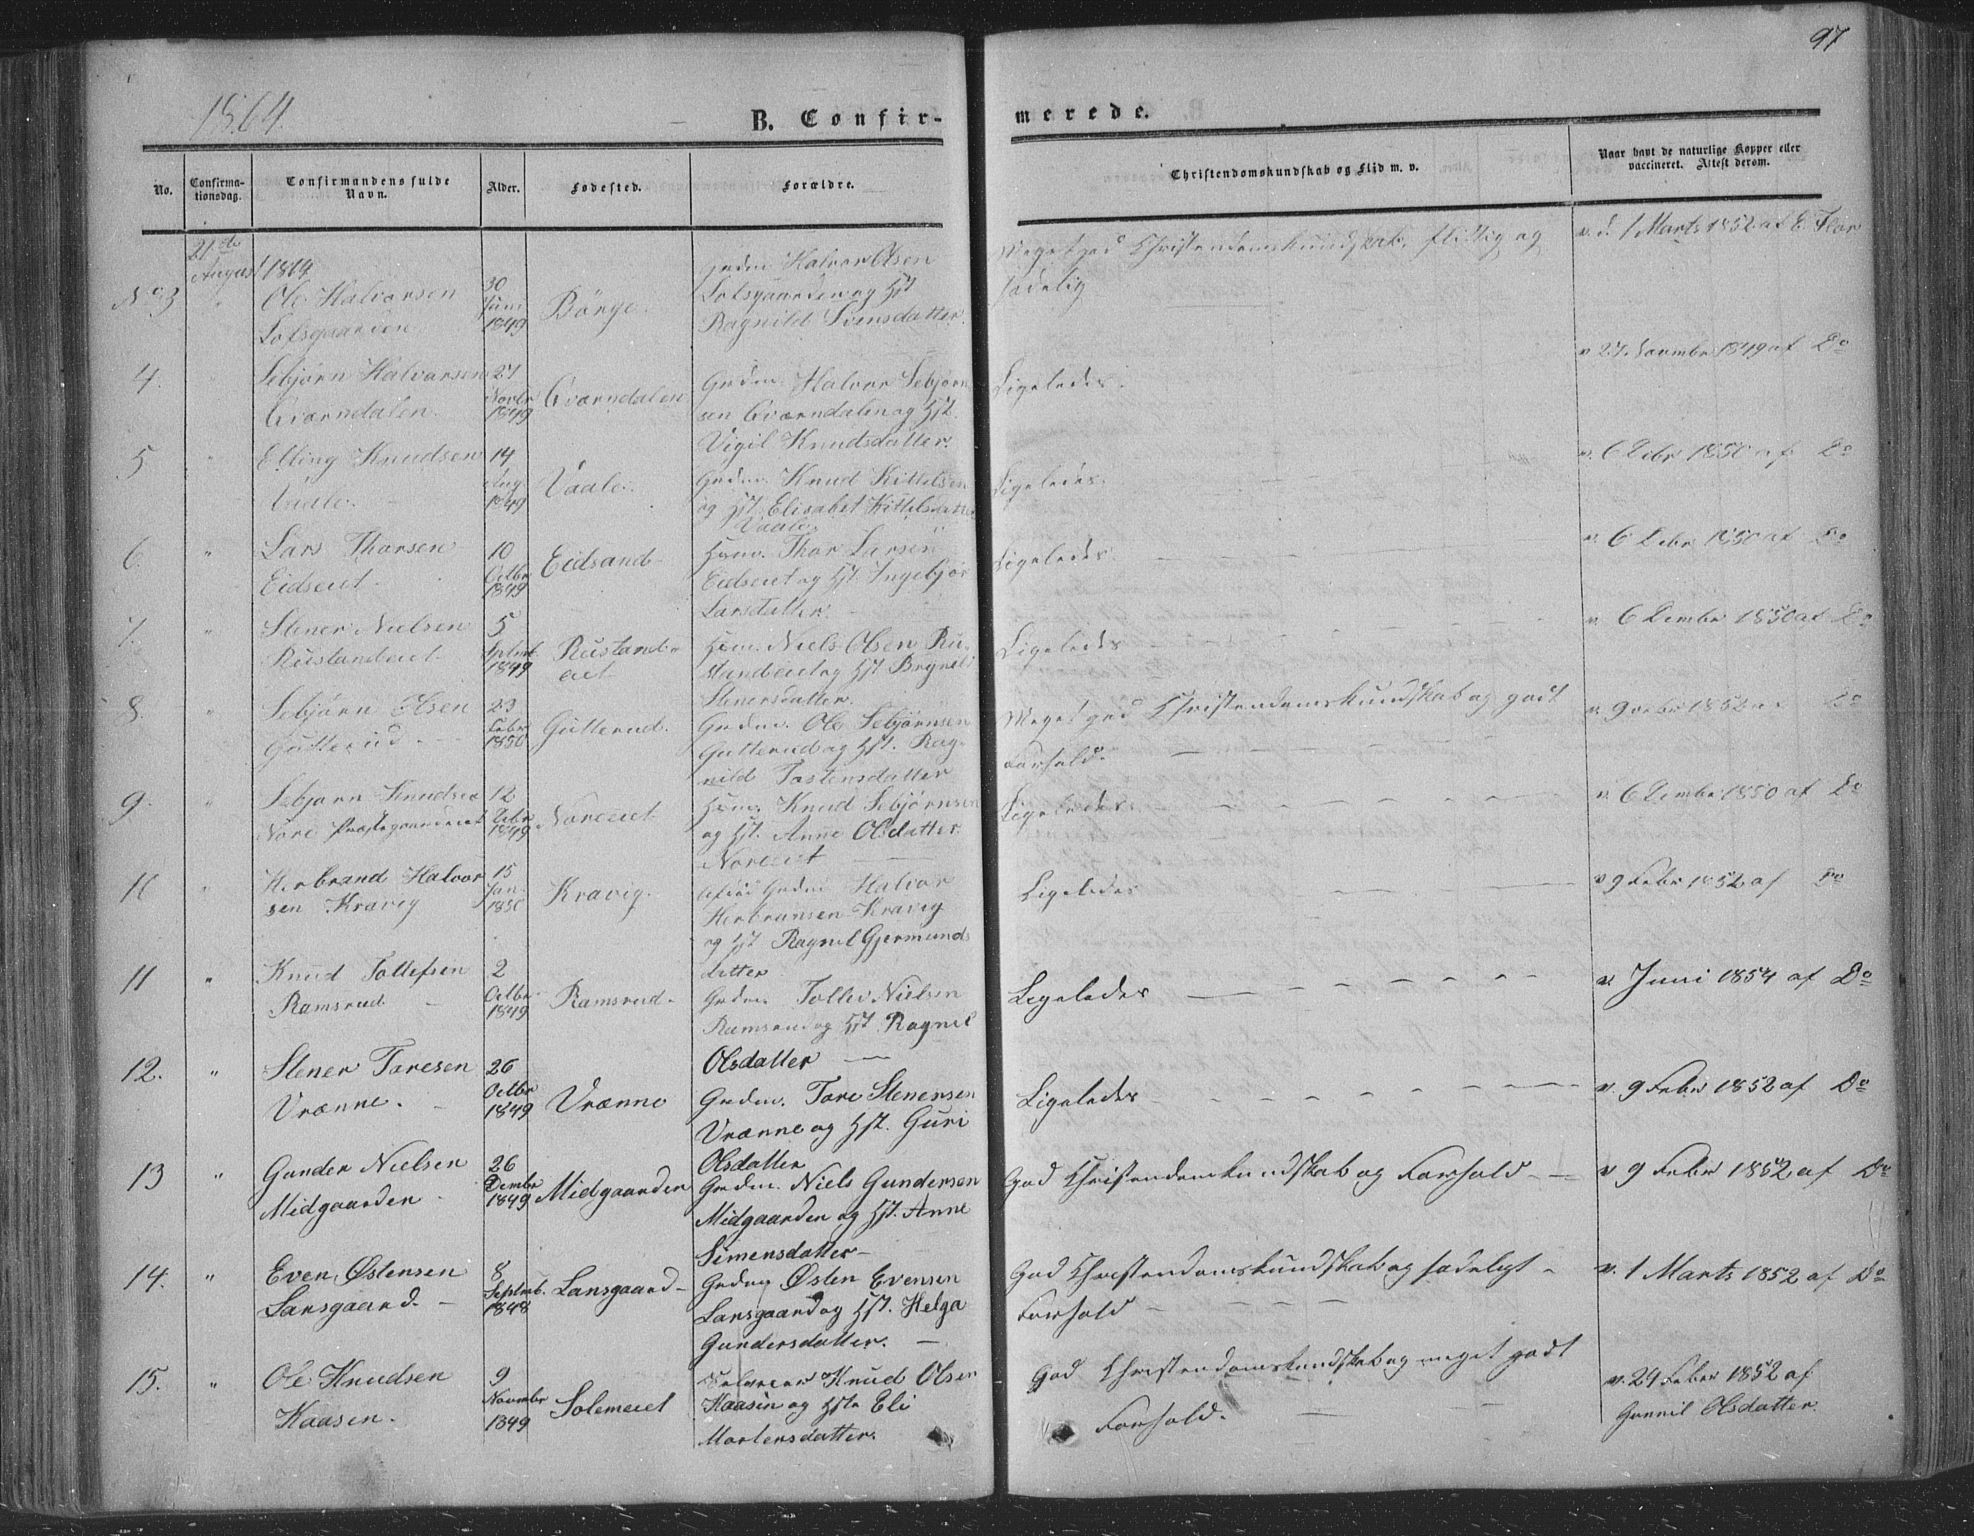 97
1864.
B. Confir-
merede.
No.
Confirma-
tionsdag.
Confirmandens fulde
Navn.
Alder.
Fødested.
Forældre.
Christendomskundskab og Flid m. v.
Naar havt de naturlige Kopper eller
vaccineret. Attest derom.
21de
August
No 3
Ole Halvorsen
Lofsgaarden
30
Juni
1849
Børge.
Grdm. Halvor Olsen
Lofsgaarden og Hst
Ragnild Svensdatter.
Meget god Christendomskundskab, flittig og
sædelig
v. d. 1 Marts 1852 af E. Flor
4.
"
Sebjørn Halvorsen
Qværndalen.
27
Novbr
1849
Qværndalen
Grdm. Halvor Sebjørn
sen Qværndalen og Hst.
Vigil Knudsdatter.
Ligeledes.
v 27 Novmbr 1849 af Do
5
"
Elling Knudsen
Vaale.
14
Aug
1849
Vaale.
Grdm. Knud Kittelsen
og Hst. Elisabet Kittelsdatter
Vaale.
Ligeledes.
v. 6 Debr 1850 af Do
6.
"
Lars Thorsen
Eidseiet.
10
Octbr
1849
Eidsand
Husm. Thor Larsen
Eidseiet og Hst Ingebjør
Larsdatter.
Ligeledes.
v. 6 Debr 1850 af Do
7.
"
Stener Nielsen
Rustandeiet.
5
Septmb.
1849
Rustand-
eiet
Husm. Niels Olsen Ru-
standeiet og Hst Brynil
Stenersdatter.
Ligeledes
v. 6 Dembr 1850 af Do
8.
"
Sebjørn Olsen
Gutterud
23
Febr
1850
Gutterud.
Grdm. Ole Sebjørnsen
Gutterud og Hst. Rag-
nild Tostensdatter
Meget god Christendomskundskab og godt
Forhold.
v. 9 Febr 1852 af Do
9.
"
Sebjørn Knudsen
Nore Præstegaardeiet
12
Octbr
1849
Noreeiet.
Husm. Knud Sebjørnsen
og Hst. Anne Olsdatter
Noreeiet
Ligeledes.
v. 6 Dembr 1850 af Do
10
"
Herbrand Halvor
sen Kravig
15
Jan
1850
Kravig.
Grdm Halvor
Herbransen Kravig
og Hst Ragnil Gjermunds
datter
Ligeledes
v 9 Febr 1852 af Do
11
"
Knud Tollefsen
Ramsrud
2
Octbr
1849
Ramsrud
Grdm. Tollev Nielsen
Ramsrud og Hst. Ragnil
Olsdatter
Ligeledes
v Juni 1854 af Do
12.
"
Stener Toresen
Vrænne.
26
Octbr
1849
Vrænne
Grdm. Tore Stenersen
Vrænne og Hst. Guri
Olsdatter
Ligeledes
v. 9 Febr 1852 af Do
13
"
Gunder Nielsen
Midgaarden
26
Dembr
1849
Midgaarden
Grdm. Niels Gundersen
Midgaarden og Hst. Anne
Simensdatter
God Christendomskundskab og Forhold
v 9 Febr 1852 af Do
14.
"
Even Østensen
Lansgaard.
8
Septmb.
1848
Lansgaard
Grdm Østen Evensen
Lansgaard og Hst. Helga
Gundersdatter.
God Christendomskundskab og sædeligt
Forhold
v. 1 Marts 1852 af Do
15.
"
Ole Knudsen
Kaasen.
9
Novmbr
1849
Solemeiet
Knud Olsen
Kaasin og Hst Eli
Mortensdatter.
God Christendomskundskab og meget godt
Forhold.
v. 24 Febr 1852 af
Gunnil Olsdatter.